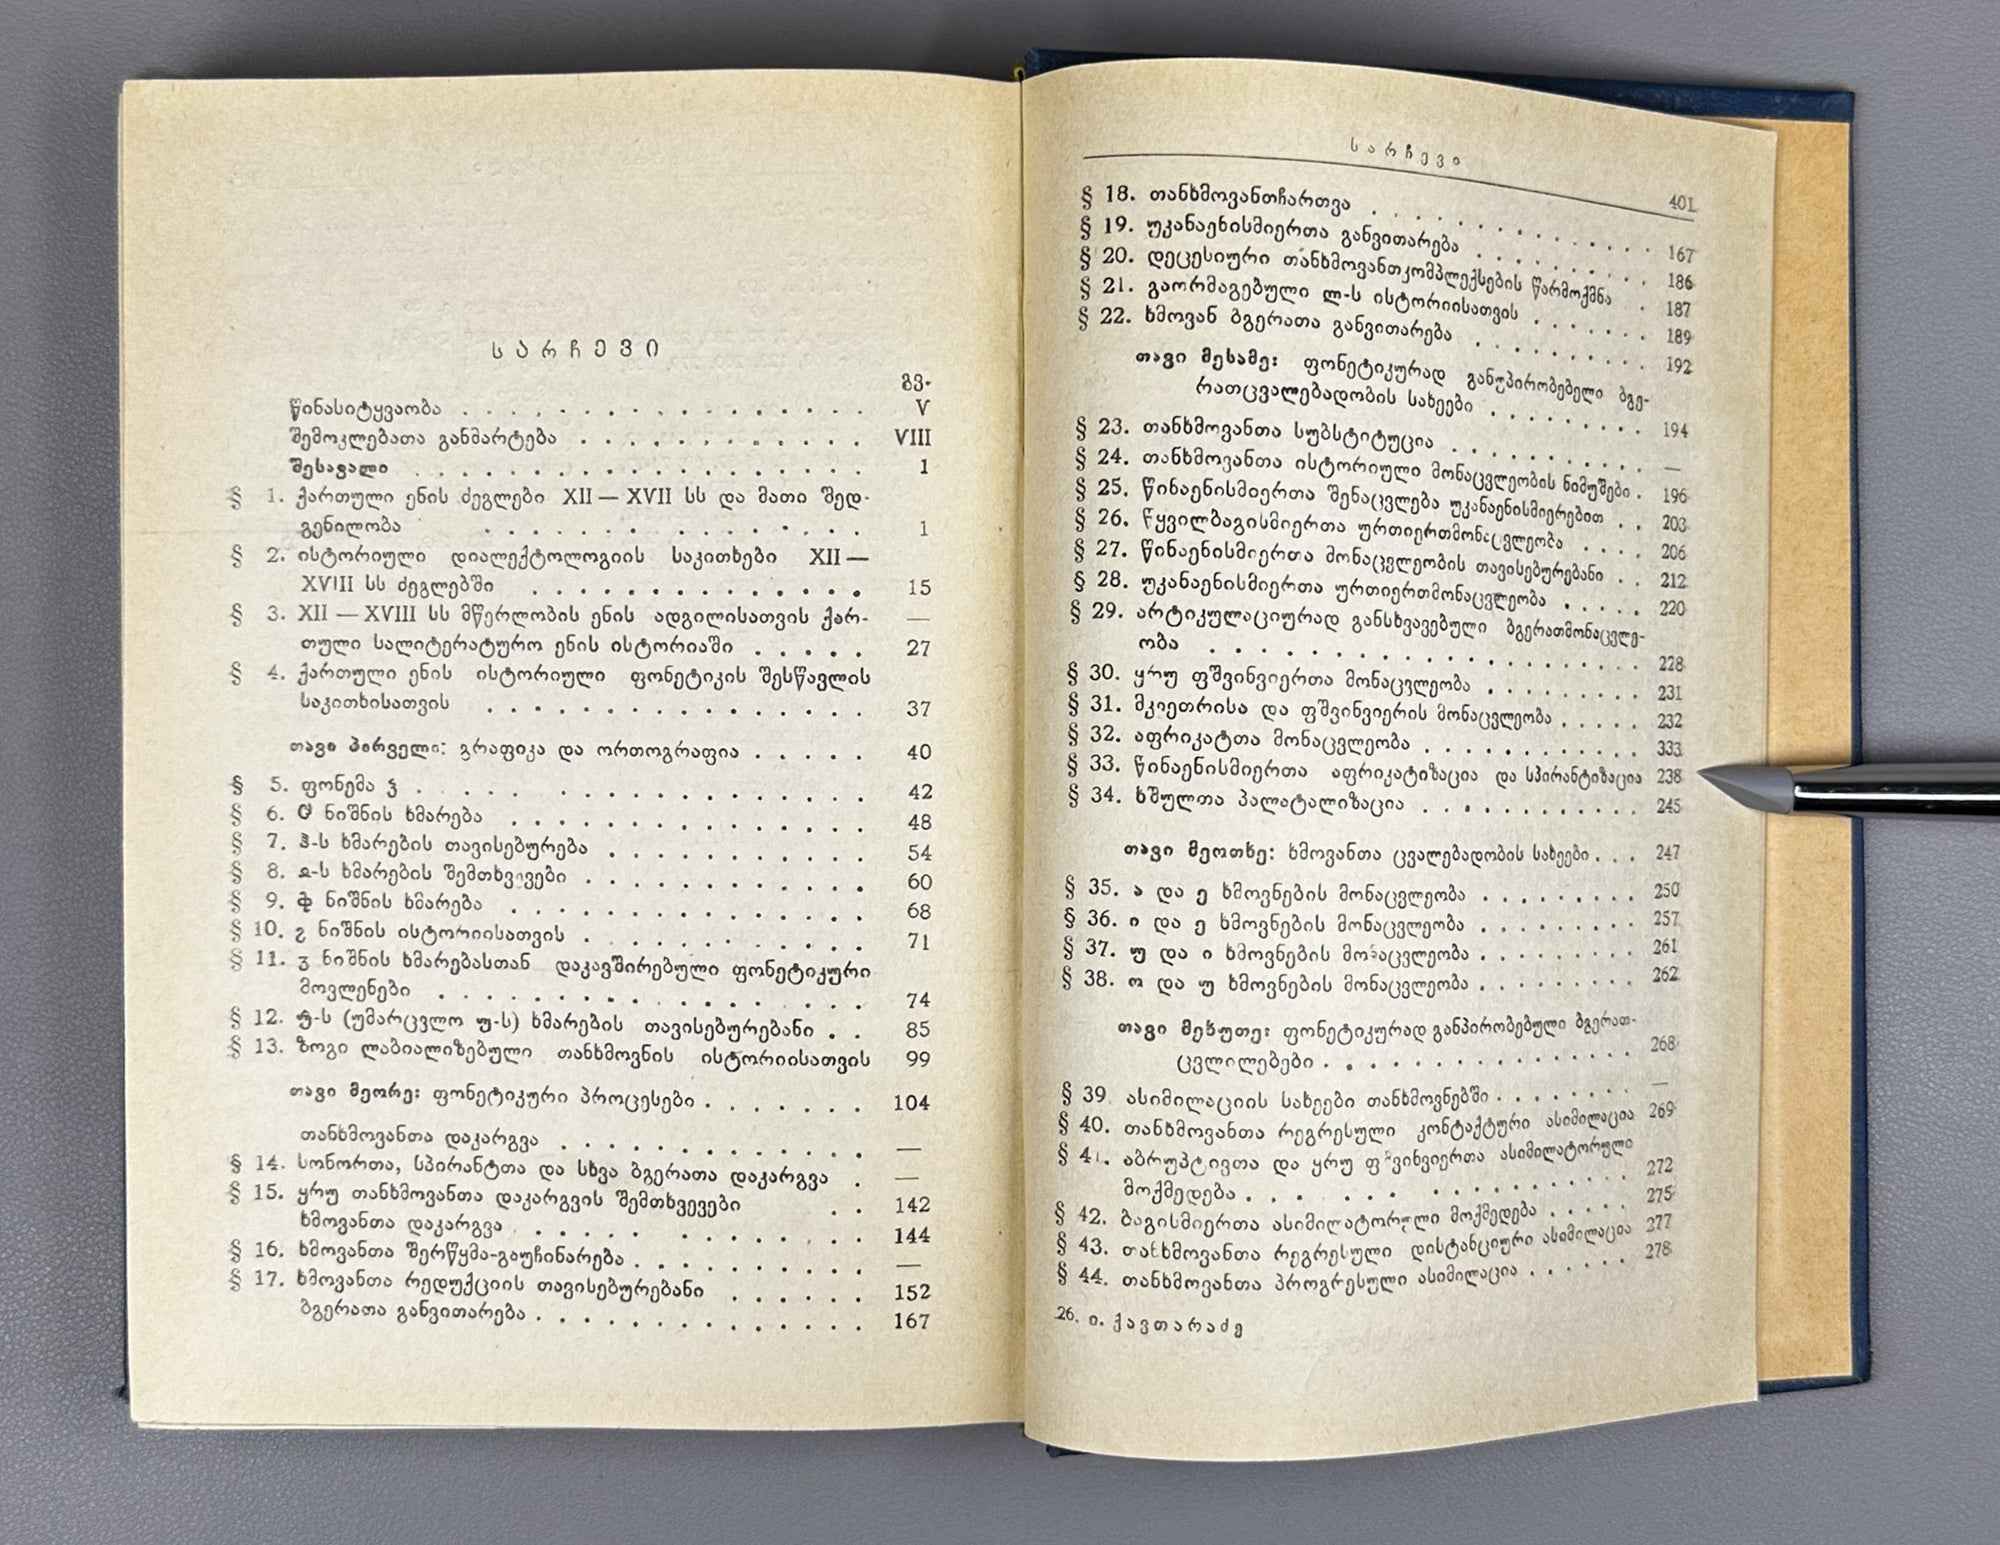 სარჩევი
გვ.
წინასიტყვაობა . . . . . . . . . . . . . . . . V
შემოკლებათა განმარტება . . . . . . . . . . VIII
შესავალი . . . . . . . . . . . . . . . . 1
§ 1. ქართული ენის ძეგლები XII — XVII სს და მათი შედ-
გენილობა . . . . . . . . . . . . 1
§ 2. ისტორიული დიალექტოლოგიის საკითხები XII —
XVIII სს ძეგლებში . . . . . . . . . . . . 15
§ 3. XII — XVIII სს მწერლობის ენის ადგილისათვის ქარ- —
თული სალიტერატურო ენის ისტორიაში . . . . . 27
§ 4. ქართული ენის ისტორიული ფონეტიკის შესწავლის
საკითხისათვის . . . . . . . . . . . . . . 37
თავი პირველი: გრაფიკა და ორთოგრაფია . . . . . 40
§ 5. ფონემა ჴ . . . . . . . . . . . . . . . 42
§ 6. ნიშნის ხმარება . . . . . . . . . . . . . 48
§ 7. ჰ-ს ხმარების თავისებურება . . . . . . . . . 54
§ 8. ხმარების შემთხვევები . . . . . . . . . . 60
§ 9. ნიშნის ხმარება . . . . . . . . . . . . . 68
§ 10. ნიშნის ისტორიისათვის . . . . . . . . . . 71
§ 11. ნიშნის ხმარებასთან დაკავშირებული ფონეტიკური
მოვლენები . . . . . . . . . . . . . . . 74
§ 12. (უმარცვლო უ-ს) ხმარების თავისებურებანი . . 85
§ 13. ზოგი ლაბიალიზებული თანხმოვნის ისტორიისათვის 99
თავი მეორე: ფონეტიკური პროცესები . . . . . . . 104
თანხმოვანთა დაკარგვა . . . . . . . . . . . —
§ 14. სონორთა, სპირანტთა და სხვა ბგერათა დაკარგვა . —
§ 15. ყრუ თანხმოვანთა დაკარგვის შემთხვევები . . 142
ხმოვანთა დაკარგვა . . . . . . . . . . . 144
§ 16. ხმოვანთა შერწყმა-გაუჩინარება . . . . . . . . . —
§ 17. ხმოვანთა რედუქციის თავისებურებანი . . . . . . 152
ბგერათა განვითარება . . . . . . . . . . . . . 167
სარჩევი
401
§ 18. თანხმოვანთჩართვა . . . . . . . . . . . . . . 167
§ 19. უკანაენისმიერთა განვითარება . . . . . . . . . 186
§ 20. დეცესიური თანხმოვანთკომპლექსების წარმოქმნა . . 187
§ 21. გაორმაგებული ლ-ს ისტორიისათვის . . . . . . . 189
§ 22. ხმოვან ბგერათა განვითარება . . . . . . . . . 192
თავი მესამე: ფონეტიკურად განუპირობებელი ბგე-
რათცვალებადობის სახეები . . . . . . . . 194
§ 23. თანხმოვანთა სუბსტიტუცია . . . . . . . . . . —
§ 24. თანხმოვანთა ისტორიული მონაცვლეობის ნიმუშები . 196
§ 25. წინაენისმიერთა შენაცვლება უკანაენისმიერებით . . 203
§ 26. წყვილბაგისმიერთა ურთიერთმონაცვლეობა . . . . 206
§ 27. წინაენისმიერთა მონაცვლეობის თავისებურებანი . . 212
§ 28. უკანაენისმიერთა ურთიერთმონაცვლეობა . . . . . 220
§ 29. არტიკულაციურად განსხვავებული ბგერათმონაცვლე-
ობა . . . . . . . . . . . . . . . . . . 228
§ 30. ყრუ ფშვინვიერთა მონაცვლეობა . . . . . . . . . 231
§ 31. მკვეთრისა და ფშვინვიერის მონაცვლეობა . . . . . 232
§ 32. აფრიკატთა მონაცვლეობა . . . . . . . . . . . . 333
§ 33. წინაენისმიერთა აფრიკატიზაცია და სპირანტიზაცია 238
§ 34. ხშულთა პალატალიზაცია . . . . . . . . . . . . 245
თავი მეოთხე: ხმოვანთა ცვალებადობის სახეები . . . 247
§ 35. ა და ე ხმოვნების მონაცვლეობა . . . . . . . . . 250
§ 36. ი და ე ხმოვნების მონაცვლეობა . . . . . . . . . 257
§ 37. უ და ი ხმოვნების მონაცვლეობა . . . . . . . . . 261
§ 38. ო და უ ხმოვნების მონაცვლეობა . . . . . . . . . 262
თავი მეხუთე: ფონეტიკურად განპირობებული ბგერათ-
ცვლილებები . . . . . . . . . . . . . . 268
§ 39. ასიმილაციის სახეები თანხმოვნებში . . . . . . . —
§ 40. თანხმოვანთა რეგრესული კონტაქტური ასიმილაცია 269
§ 41. აბრუპტივთა და ყრუ ფშვინვიერთა ასიმილატორული
მოქმედება . . . . . . . . . . . . . . . . 272
§ 42. ბაგისმიერთა ასიმილატორული მოქმედება . . . . . 275
§ 43. თანხმოვანთა რეგრესული დისტანციური ასიმილაცია 277
§ 44. თანხმოვანთა პროგრესული ასიმილაცია . . . . . . 278
26. ი. ქავთარაძე